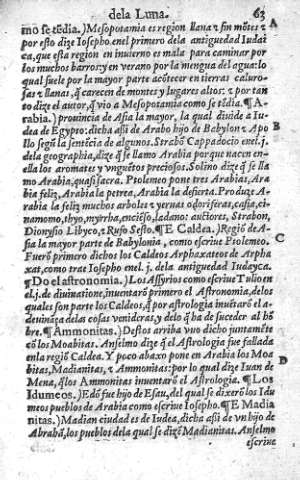 dela Luna. 63
mo se tēdia.) Mesopotamia es region llana z sin mōtes z A
por esto dize Iosepho.enel primero dela antiguedad Iudai
ca, que esta region en inuierno es mala para caminar por
los muchos barros: y en verano por la mengua del agua: lo
qual suele por la mayor parte acōtecer en tierras caluro-
sas z llanas, q̄ carecen de montes y lugares altos: z por tan
to dize el autor, q̄ vio a Mesopotamia como se tēdia. ¶A-
rabia.) prouincia de Asia la mayor, la qual diuide a Iu-
dea de Egypto: dicha assi de Arabo hijo de Babylon z Apo B
llo segū la sentēcia de algunos. Strabō Cappadocio enel.j.
dela geographia, dize q̄ se llamo Arabia porque nacen en-
ella los aromates y vnguētos preciosos. Solino dize q̄ se lla
mo Arabia, quasi sacra. Ptolemeo pone tres Arabias, Ara
bia feliz, Arabia la petrea, Arabia la desierta. Produze A-
rabia la feliz muchos arboles z yeruas odoriferas, casia, ci-
namomo, thyo, myrrha, enciēso, ladano: auctores, Strabon,
Dionysio Libyco, z Rufo Sesto. ¶E Caldea.) Regiō de A- C
sia la mayor parte de Babylonia, como escriue Ptolemeo.
Fuerō primero dichos los Caldeos Arphaxateos de Arpha
xat, como trae Iosepho enel.j. dela antiguedad Iudayca.
¶Do el astronomia.) Los Assyrios como escriue Tulio en
el.j. de diuinatione, inuentarō primero el Astronomia, delos
quales son parte los Caldeos, q̄ por astrologia inuētarō el a-
deuināça delas cosas venideras, y delo q̄ ha de suceder al hō
bre. ¶Ammonitas.) Destos arriba vuo dicho juntamēte
cō los Moabitas. Anselmo dize q̄ el Astrologia fue fallada
enla regiō Caldea. Y poco abaxo pone en Arabia los Moa D
bitas, Madianitas, z Ammonitas: por lo qual dize Iuan de
Mena, q̄ los Ammonitas inuentarō el Astrologia. ¶Los
Idumeos.) Edō fue hijo de Esau, del qual se dixerō los Idu
meos pueblos de Arabia como escriue Iosepho. ¶E Madia
nitas.) Madian ciudad es de Iudea, dicha assi de vn hijo de
Abrahā, los pueblos dela qual se dizē Madianitas. Anselmo
escriue